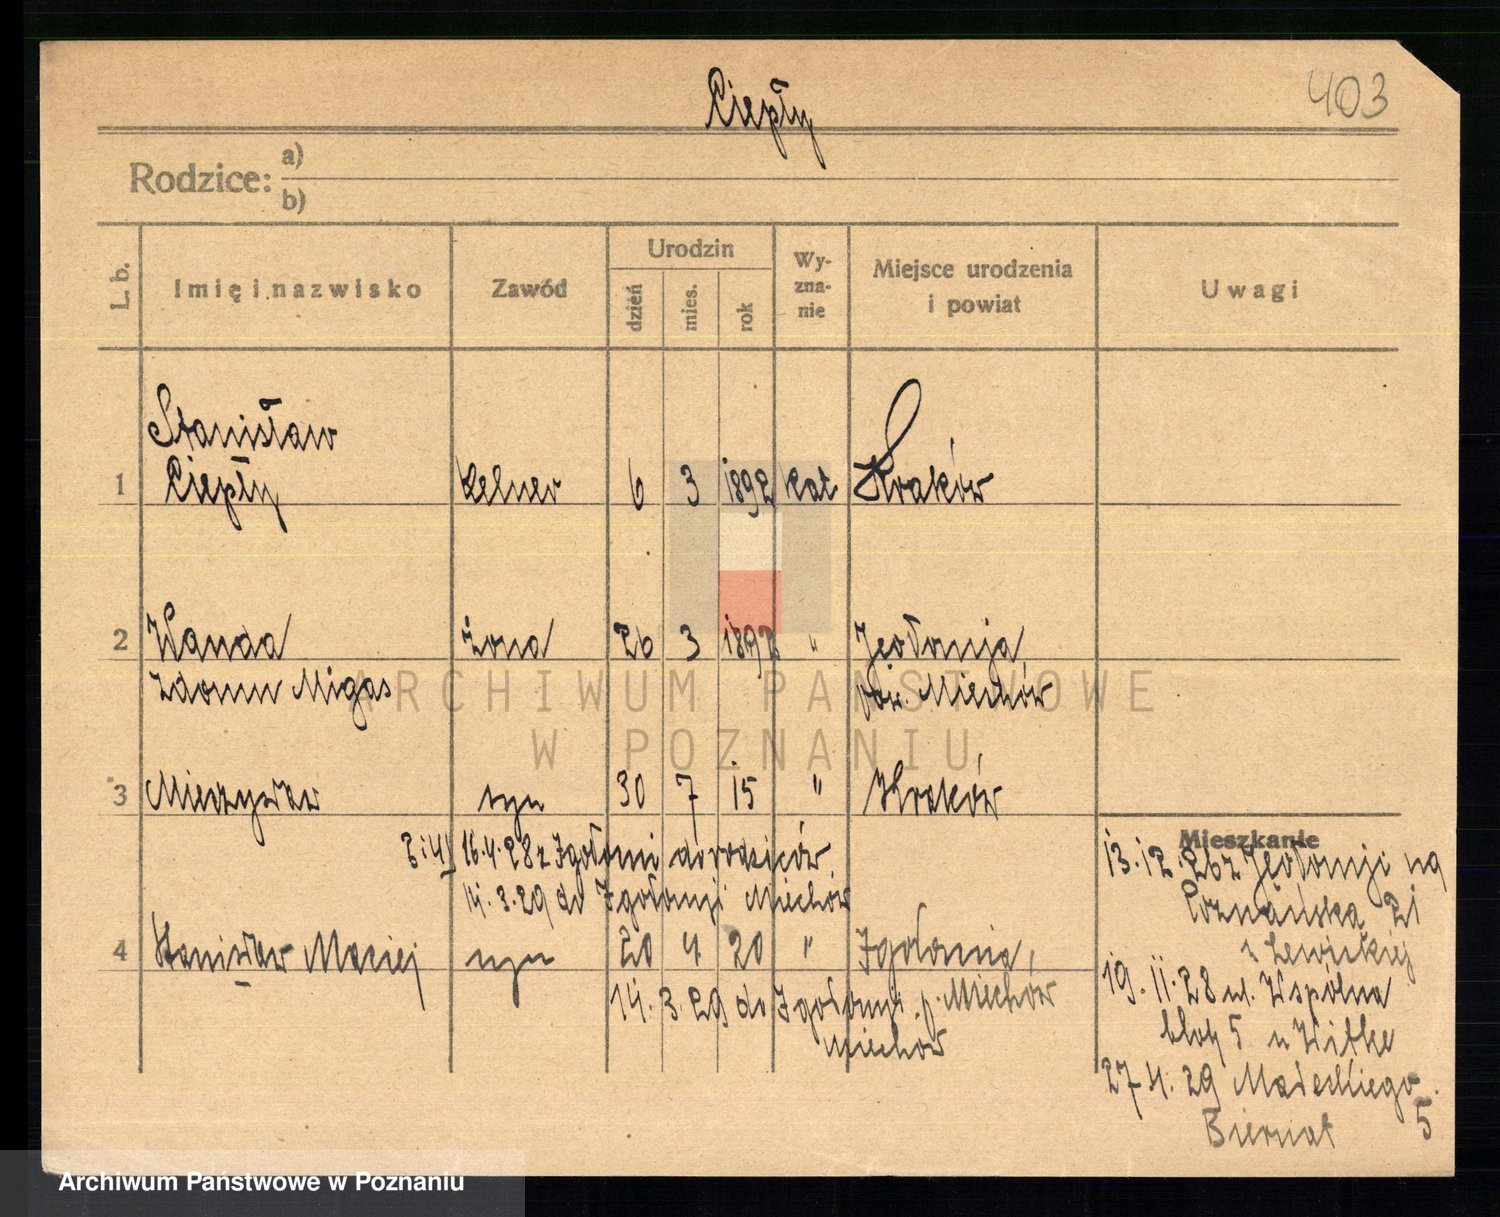 403
Ciepły
Rodzice: a)
b)
L. b. Imię i nazwisko Zawód Urodzin dzień mies. rok Wyzna-nie Miejsce urodzenia i powiat Uwagi
Stanisław
1 Ciepły kelner 6 3 1892 kat Kraków
2 Wanda żona 26 3 1892 " Jgołomja
zdomu Migas pow. Miechów
3 Mieczysław syn 30 7 15 " Kraków
Mieszkanie
3 i 4) 16.4.28 z Jgołomi do rodziców
14.3.29 do Jgołomji Miechów
4 Stanisław Maciej syn 20 4 20 " Jgołomia,
14.3.29 do Jgołomji p. Miechów
Miechów
13.12.26 z Jgołomji na
Poznańska 21
u Lewickiej
19.11.28 ul. Wspólna
blok 5 u Witke
27.4.29 Małeckiego 5
Biernat
ARCHIWUM PAŃSTWOWE
W POZNANIU
Archiwum Państwowe w Poznaniu